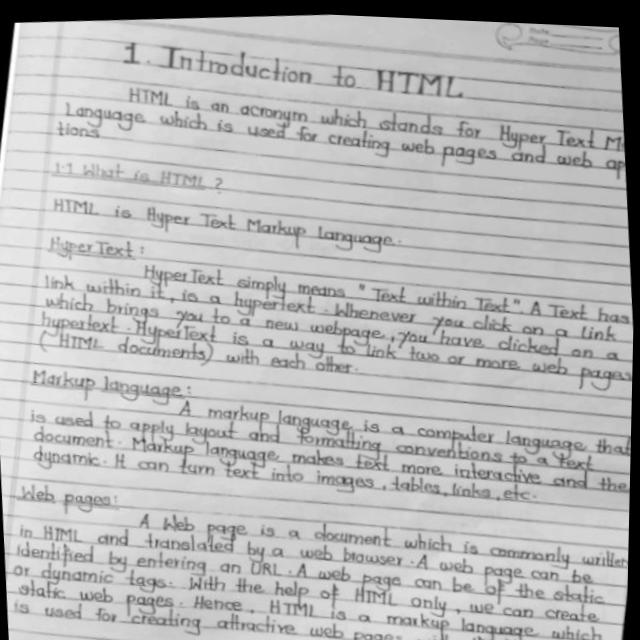 1. Introduction to HTML
HTML is an acronym which stands for Hyper Text
Language which is used for creating web pages and web
tions
1.1 What is HTML ?
HTML is Hyper Text Markup language.
HyperText :
HyperText simply means "Text within Text". A Text has
link within it, is a hypertext. Whenever you click on a link
which brings you to a new webpage, you have clicked on a
hypertext. HyperText is a way to link two or more web pages
(HTML documents) with each other.
Markup language :
A markup language is a computer language that
is used to apply layout and formatting conventions to a text
document. Markup language makes text more interactive and the
dynamic. It can turn text into images, tables, links, etc.
Web pages :
A Web page is a document which is commonly written
in HTML and translated by a web browser. A web page can be
identified by entering an URL. A web page can be of the static
or dynamic tags. With the help of HTML only, we can create
static web pages. Hence, HTML is a markup language which
is used for creating attractive web pages